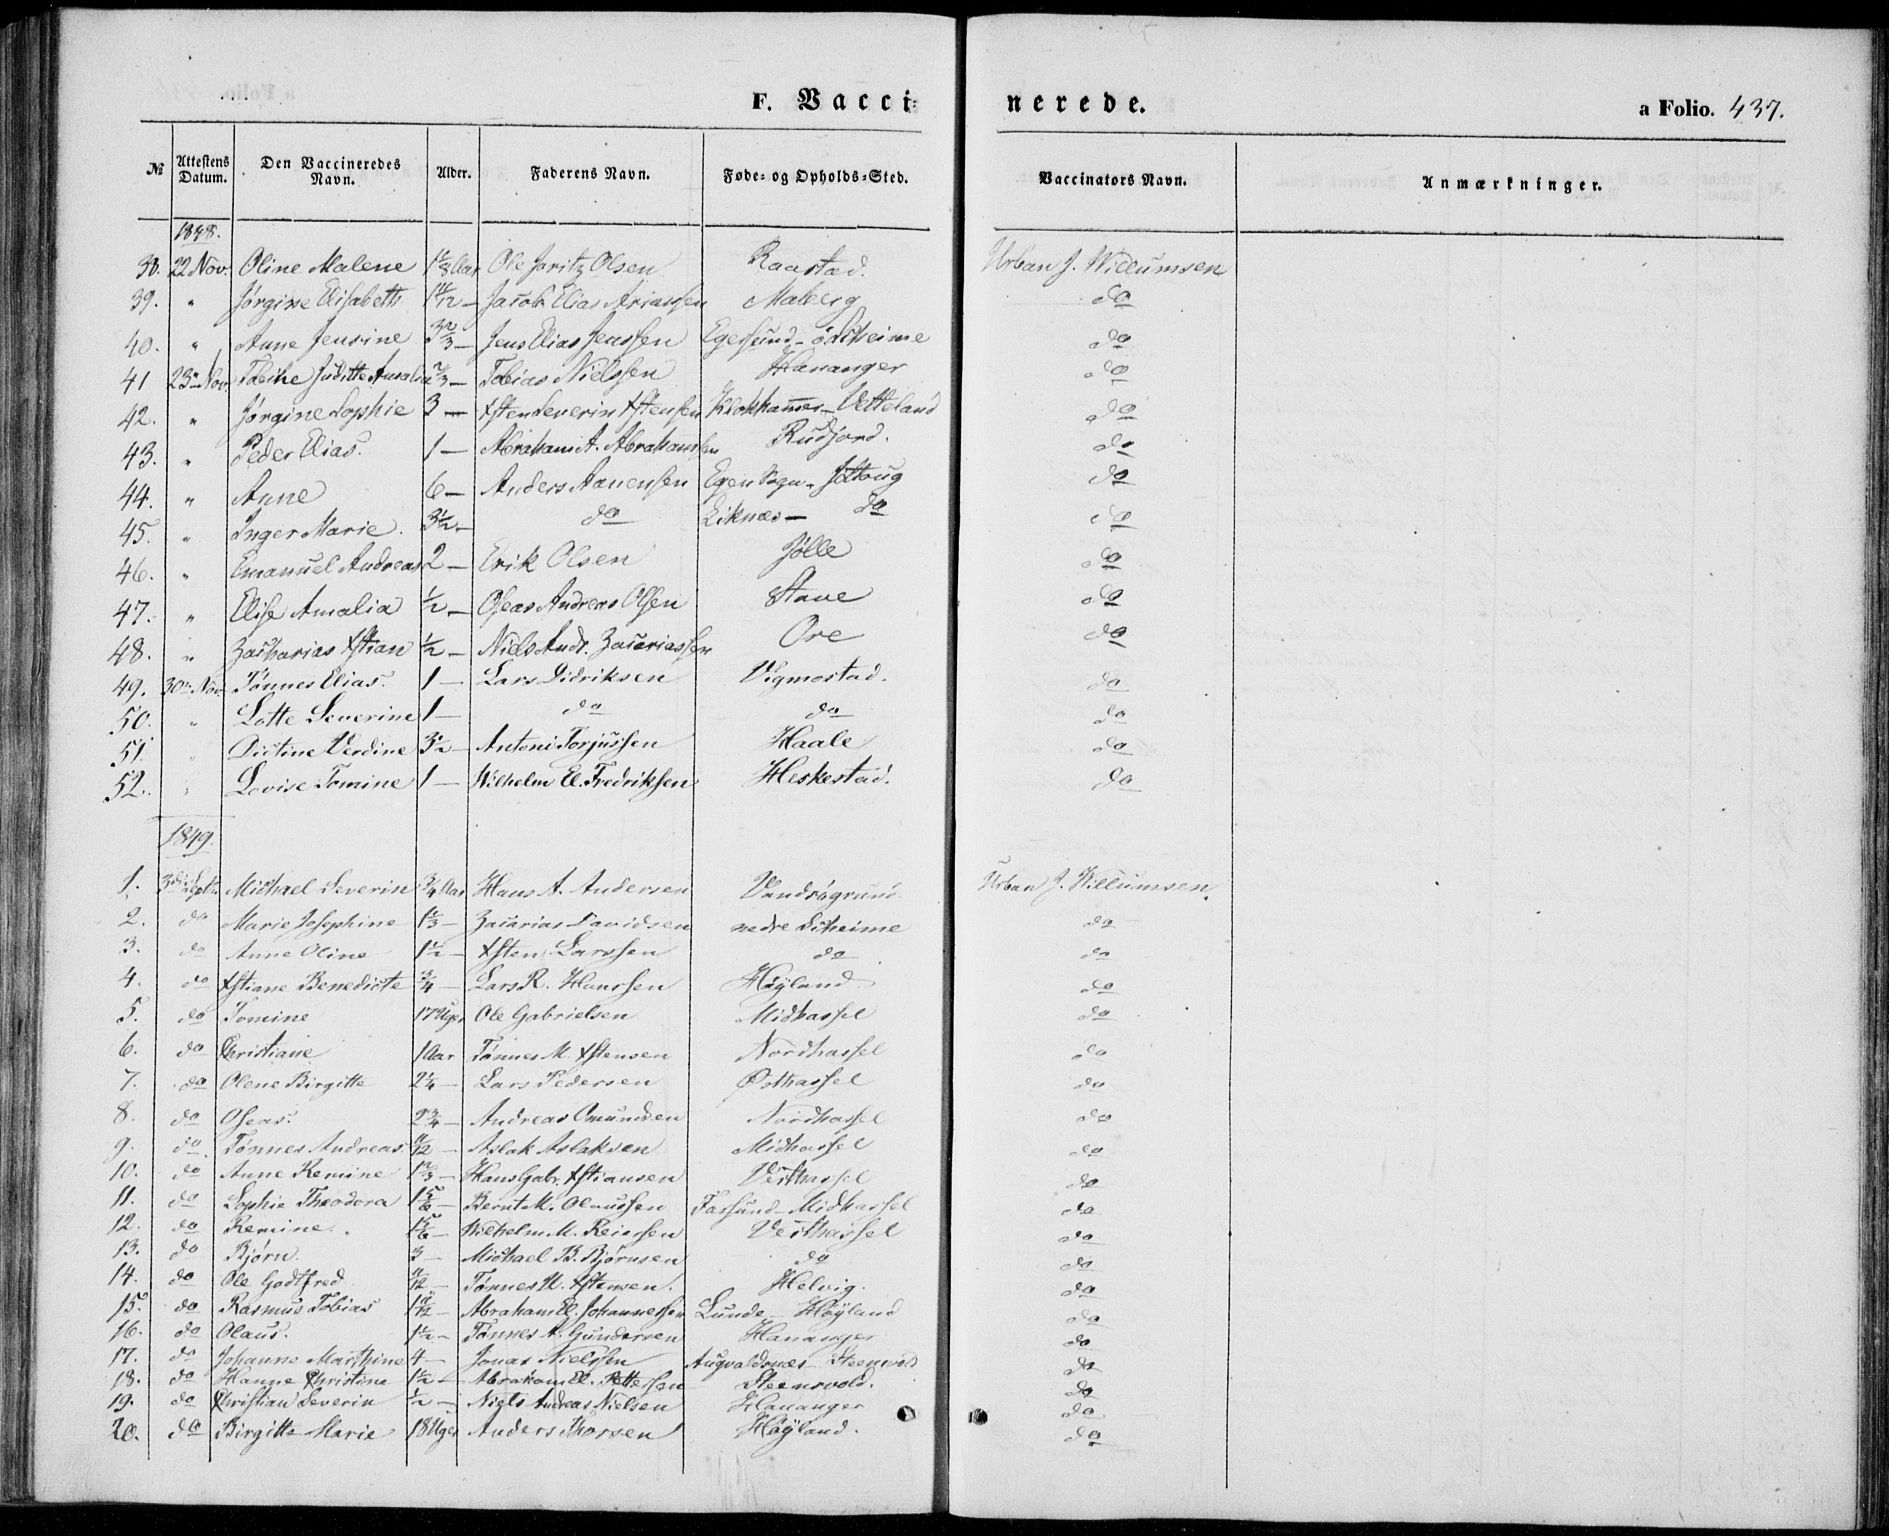 F. Vaccinerede. a Folio. 437.
№ Attestens Datum. Den Vaccineredes Navn. Alder. Faderens Navn. Føde- og Opholds-Sted. Vaccinators Navn. Anmærkninger.
1848.
38. 22 Nov. Oline Malene 1 1/8 Aar Ole Joritz Olsen Raastad. Urban J. Willumsen
39. " Jørgine Elisabeth 1 1/12 — Jacob Elias Ariansen Maberg do
40. " Anne Jensine 3 2/3 — Jens Elias Jenssen Egersund - do
41 23 Nov. Juditte Amalia 2/3 — Tobias Nielssen Hananger do
42. " Jørgine Sophie 3 — Xsten Severin Xstensen Klokhammer - Vetteland do
43. " Peder Elias. 1 — Abraham A. Abrahamsen Rudjord. do
44. " Anne 6 — Anders Aanensen Egen Sogn - do
45. " Inger Marie. 3 1/2 — do Eiknæs — do do
46. " Emanuel Andreas 2 — Erik Olsen Jølle do
47. " Elise Amalia 1/2 — Oseas Andreas Olsen Stave do
48. " Zacharias Xstian 1/2 — Niels Andr. Zacariassen Ore do
49. 30 Nov. Tønnes Elias. 1 — Lars Didriksen Vigmostad. do
50. " Lotte Severine 1 — do do do
51. " Dictine Verdine 3 1/2 — Antoni Torjussen Haale do
52. " Lovise Tomine 1 — Wilhelm El. Fredriksen Heskestad. do
1849.
1. 3die Septr. Michael Severin 3/4 Aar Hans A. Andersen Vandsøgrund Urban J. Willumsen.
2. do Marie Josephine 1 1/3 — Zacarias Davidsen nedre do
3. do Anne Oline 1 1/2 — Xsten Larssen do do
4. do Xstiane Benedicte 3/4 — Lars R. Hanssen Høyland do
5. do Tomine 17 Uger Ole Gabrielsen Midhassel do
6. do Christiane 1 Aar Tønnes M. Xstensen Nordhassel do
7. do Olene Birgitte 2 1/4 — Lars Pedersen Østhassel do
8. do Oseas. 2 3/4 — Andreas Omundsen Nordhassel do
9. do Tønnes Andreas. 11/12 — Aslak Aslaksen Midhassel do
10. do Anne Remine 1 2/3 — Hans Gabr. Xstiansen Vesthassel do
11. do Sophie Theodora 1 5/6 — Bernt M. Olaussen Farsund - Midhassel do
12. do Remine. 1 5/6 — Wilhelm M. Reierssen Vesthassel do
13. do Bjørn. 3 — Michael B. Bjørnsen do do
14. do Ole Godtfred 11/12 — Tønnes M. Xstensen. Helvig. do
15. do Rasmus Tobias 1 11/12 — Abraham El. Johannessen Lunde - Høyland do
16. do Olaus. 1 1/2 — Tønnes A. Gundersen Hananger do
17. do Johanne Marthine 4 — Jonas Nielssen Augvaldsnæs - Steensvold do
18. do Hanne Christine 1 1/2 — Abraham El. Pettersen Steensvold. do
19. do Christian Severin 1/2 — Niels Andreas Nielsen Hananger do
20. do Birgitte Marie 18 Uger Anders Thorsen Høyland. do